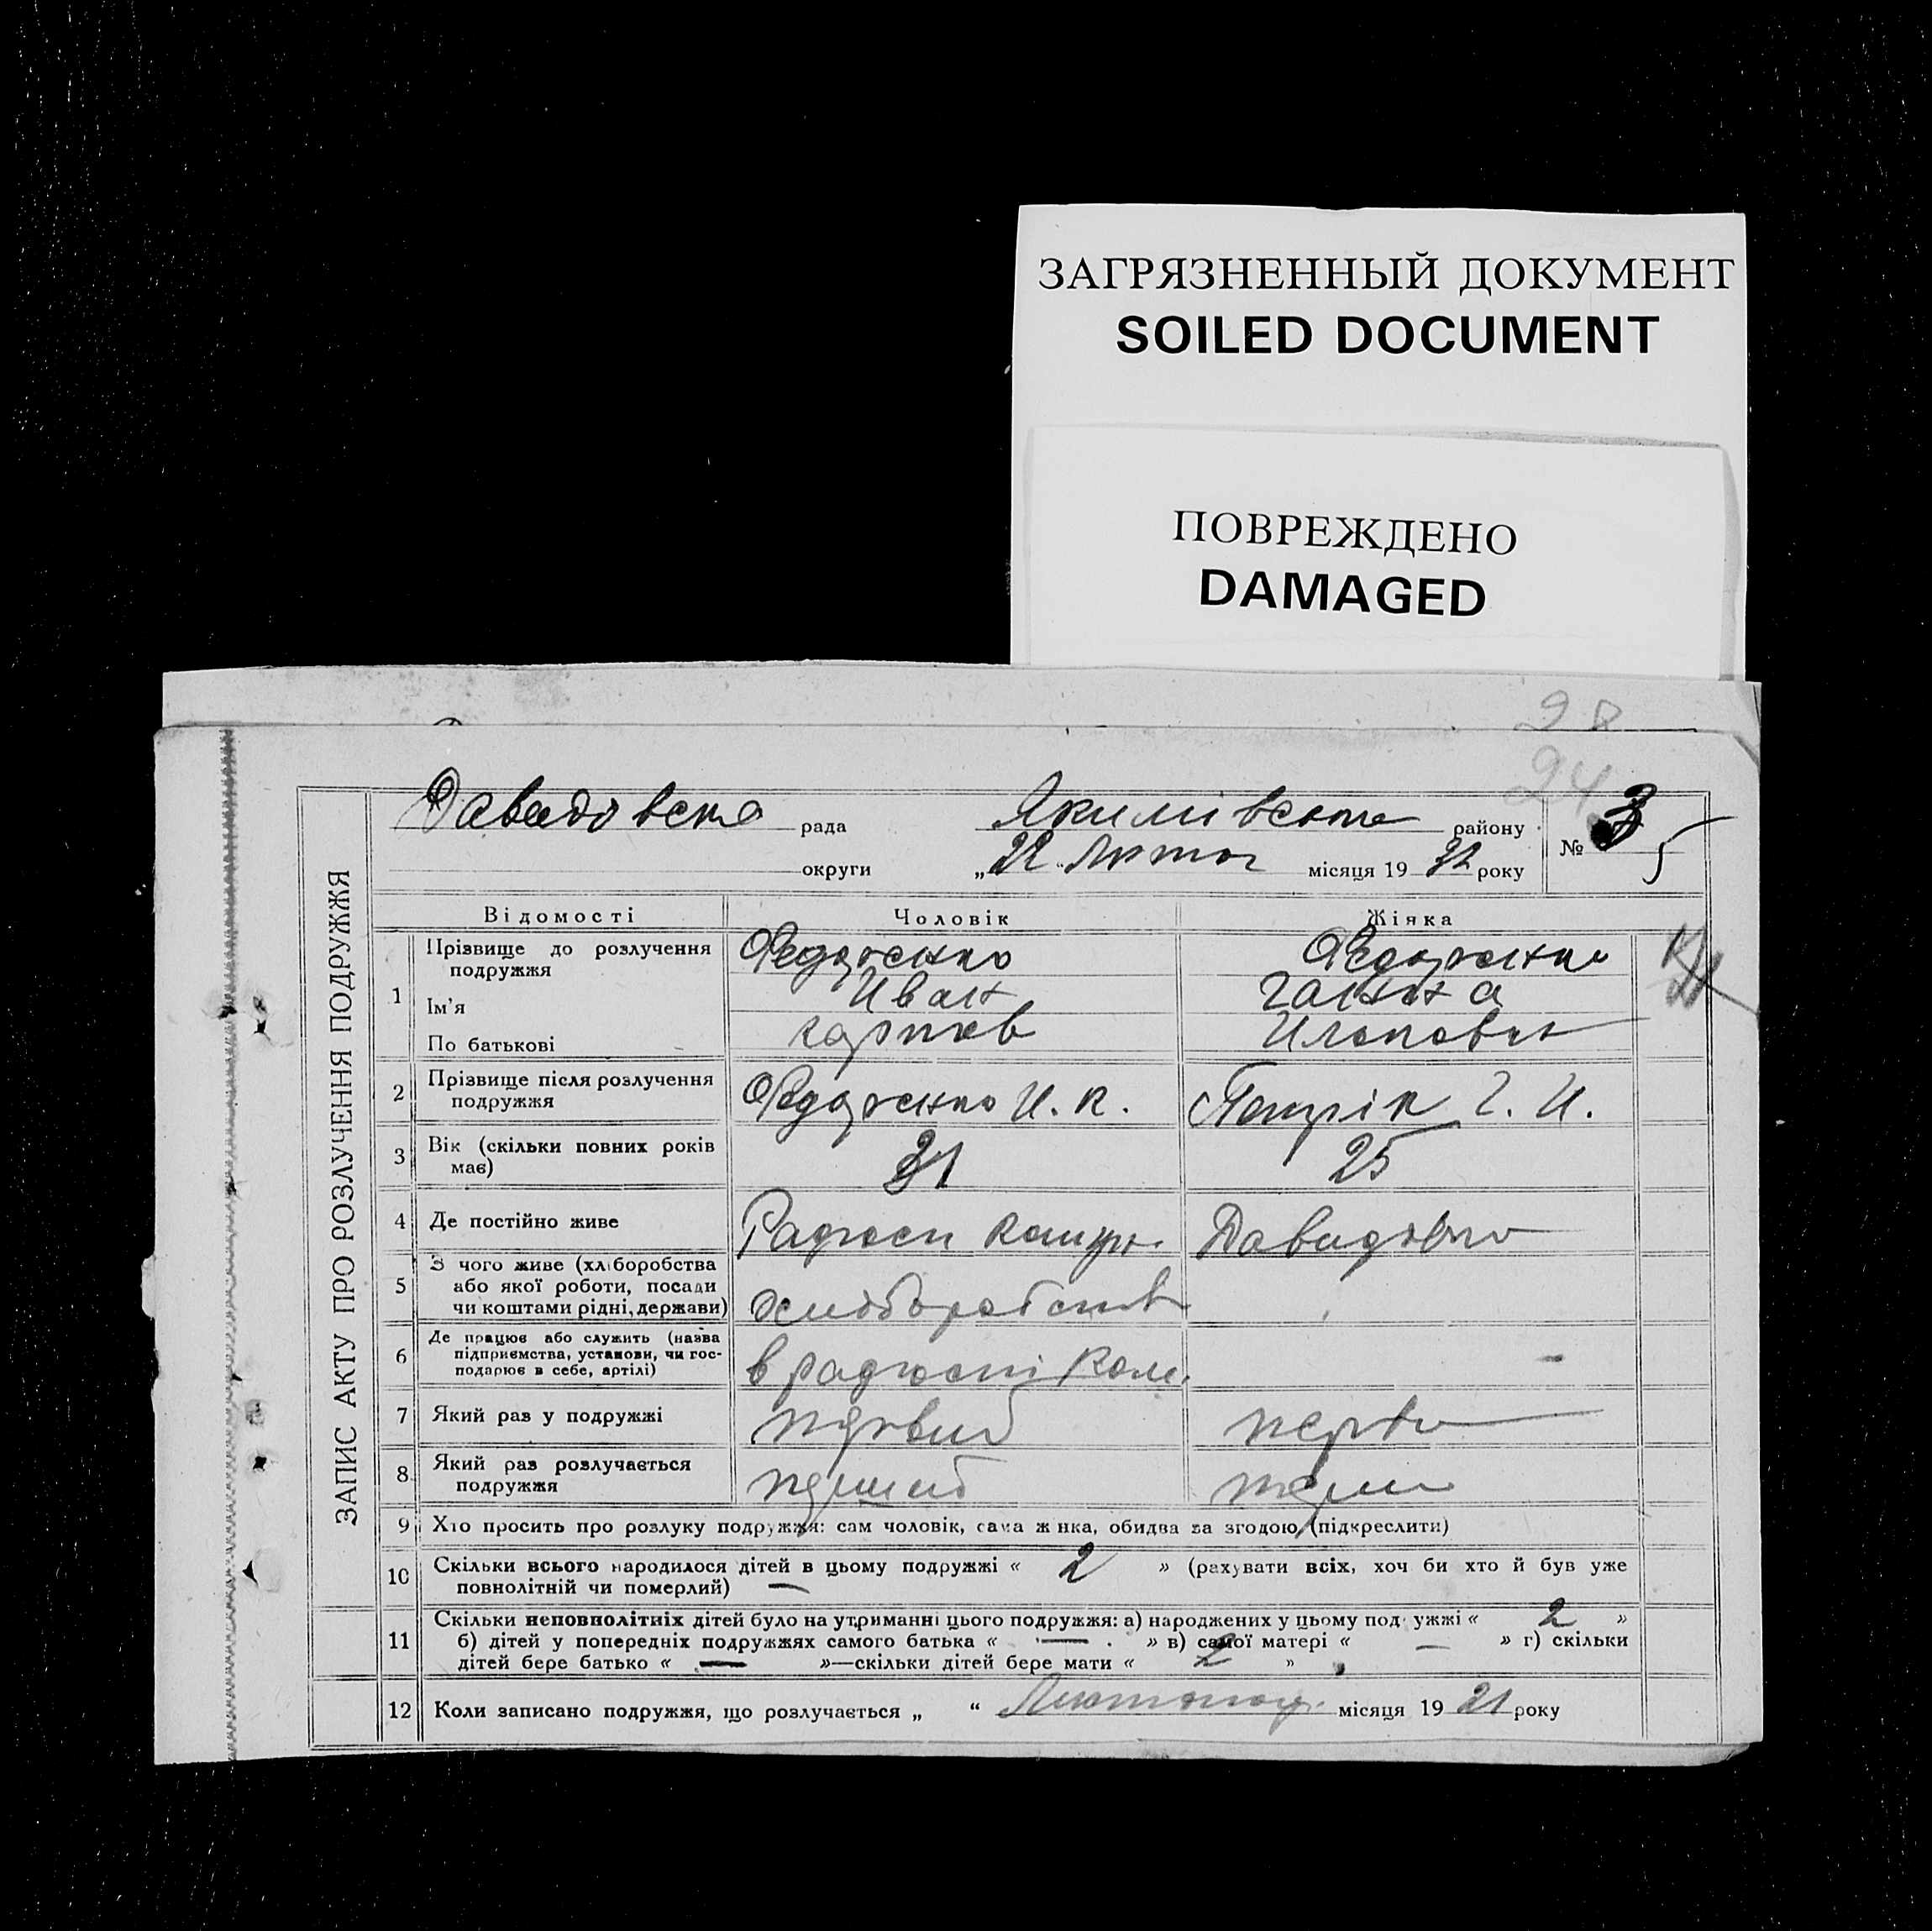 ЗАГРЯЗНЕННЫЙ ДОКУМЕНТ
SOILED DOCUMENT
ПОВРЕЖДЕНО
DAMAGED
28
24
рада
району
№ 3
5
округи „22 місяця 19 32 року
ЗАПИС АКТУ ПРО РОЗЛУЧЕННЯ ПОДРУЖЖЯ
Відомості Чоловік Жінка
1 Прізвище до розлучення Федоренко Федоренко
подружжя
Ім'я Иван Ганна
По батькові Карпов
2 Прізвище після розлучення Федоренко И. К. Г. И.
подружжя
3 Вік (скільки повних років 31 25
має)
4 Де постійно живе
5 З чого живе (хліборобства
або якої роботи, посади
чи коштами рідні, держави)
6 Де працює або служить (назва
підприємства, установи, чи гос- —
подарює в себе, артілі)
7 Який раз у подружжі первий
8 Який раз розлучається
подружжя
9 Хто просить про розлуку подружжя: сам чоловік, сама жінка, обидва за згодою (підкреслити)
10 Скільки всього народилося дітей в цьому подружжі « 2 » (рахувати всіх, хоч би хто й був уже
повнолітній чи померлий) —
11 Скільки неповнолітніх дітей було на утриманні цього подружжя: а) народжених у цьому подружжі « 2 »
б) дітей у попередніх подружжях самого батька « — » в) самої матері « — » г) скільки
дітей бере батько « — »—скільки дітей бере мати « 2 »
12 Коли записано подружжя, що розлучається „ “ місяця 19 21 року